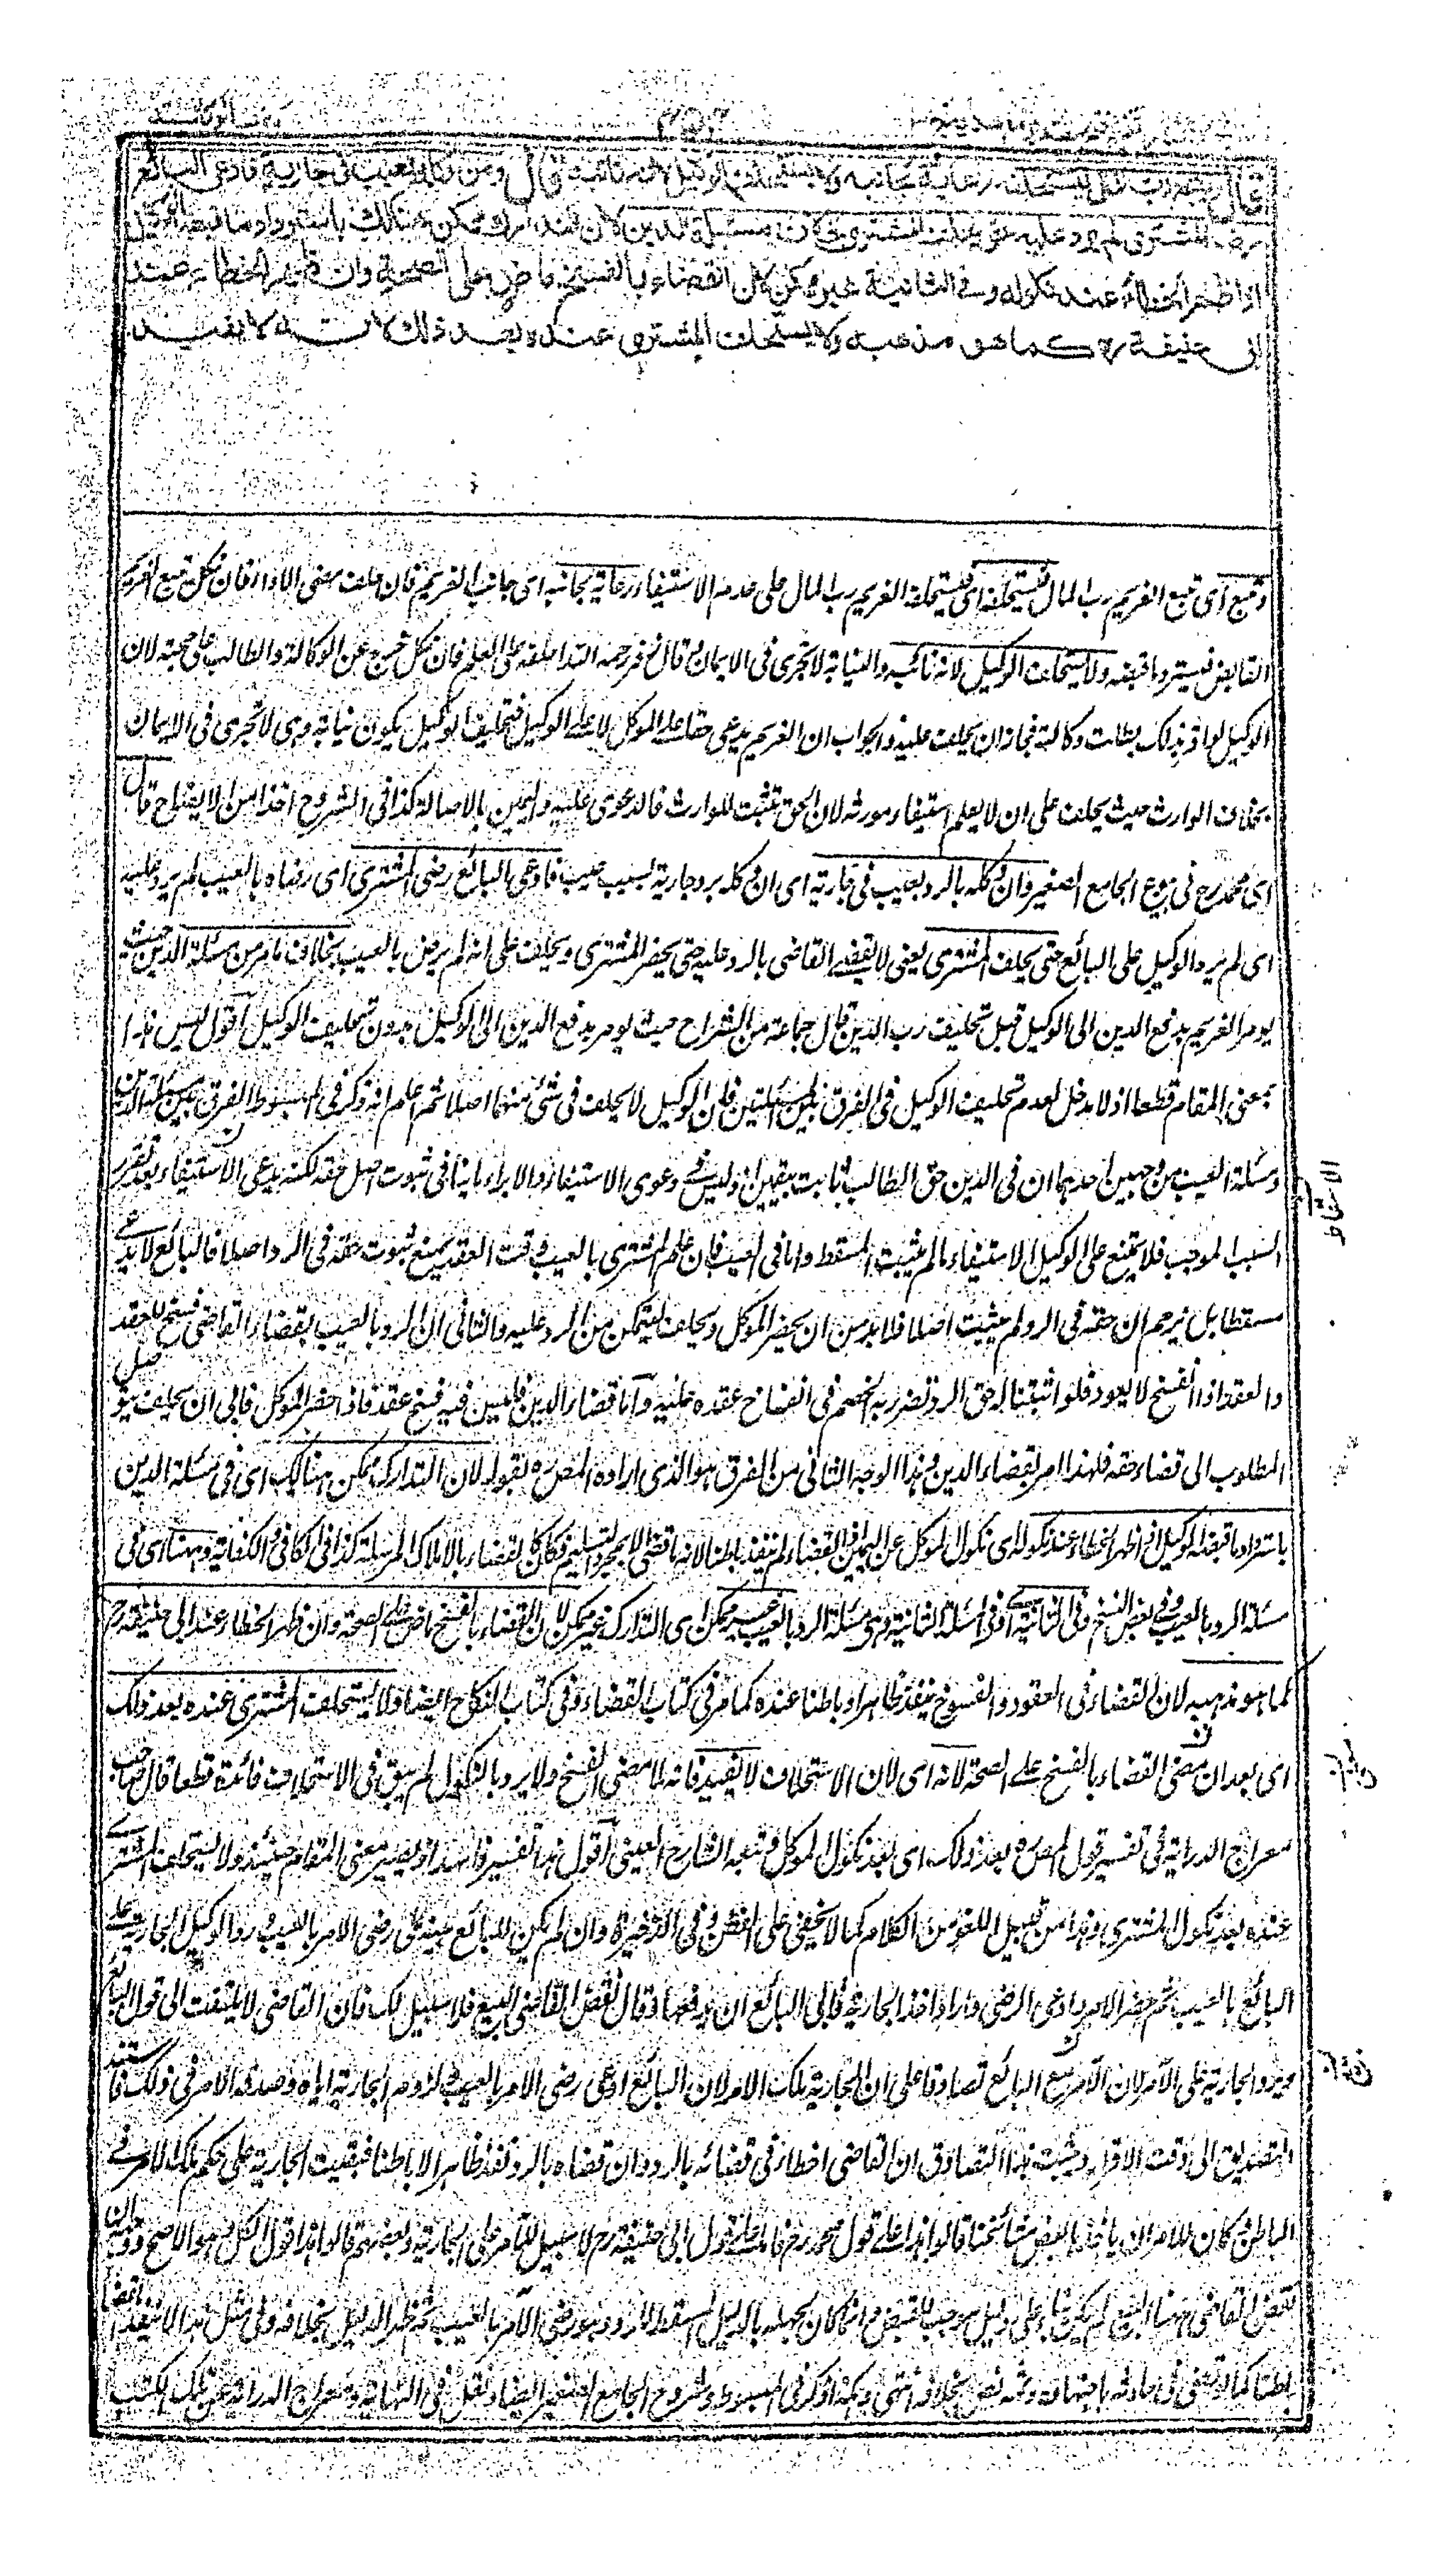 قال ويتبع رب المال فيستحلفه رعاية لجانبه ولا يستحلف الوكيل لانه نائب قال ومن وكله بعيب في جارية فادعى البائع
رضا المشتري لم يرد عليه حتى يحلف المشتري بخلاف مسئلة الدين لان التدارك ممكن هنالك باسترداد ما قبضه الوكيل
اذا ظهر الخطاء عند نكوله وفي الثانية غير ممكن لان القضاء بالفسخ ماض على الصحة وان ظهر الخطاء عند
ابى حنيفة رح كما هو مذهبه ولا يستحلف المشتري عنده بعد ذلك لانه لا يفيد
ويتبع اى يتبع الغريم رب المال فيستحلفه اى فيستحلف الغريم رب المال على عدم الاستيفاء رعاية لجانبه اى جانب الغريم فان حلف مضى الاداء فان نكل يتبع الغريم
القابض فيسترد ما قبضه ولا يستحلف الوكيل لانه نائب والنيابة لا تجرى فى الايمان وقال زفر رحمه الله احلفه على العلم فان نكل خرج عن الوكالة والطالب على حجته لان
الوكيل لو اقر بذلك بطلت وكالته فجاز ان يحلف عليه والجواب ان الغريم يدعى حقا على الموكل لا على الوكيل فتحليف الوكيل يكون نيابة وهى لا تجرى فى الايمان
بخلاف الوارث حيث يحلف على ان لا يعلم استيفاء مورثه لان الحق يثبت للوارث فالدعوى عليه واليمين بالاصالة كذا فى الشروح اخذا من الايضاح قال
اى محمد رح فى بيوع الجامع الصغير وان وكله بالرد بعيب فى جارية اى ان وكله برد جارية بسبب عيب فادعى البائع رضى المشترى اى رضاه بالعيب لم يرد عليه
اى لم يرد الوكيل على البائع حتى يحلف المشترى يعنى لا يقضى القاضى بالرد عليه حتى يحضر المشترى ويحلف على انه لم يرض بالعيب بخلاف ما مر من مسئلة الدين حيث
يومر الغريم بدفع الدين الى الوكيل قبل تحليف رب الدين قال جماعة من الشراح حيث يومر بدفع الدين الى الوكيل بدون تحليف الوكيل اقول ليس هذا
بمعنى المقام قطعا اذ لا مدخل لعدم تحليف الوكيل فى الفرق بين المسئلتين فان الوكيل لا يحلف فى شئ منهما اصلا ثم اعلم انه ذكر فى المبسوط الفرق بين مسئلة الدين
ومسئلة العيب من وجهين احدهما ان فى الدين حق الطالب ثابت بيقين اذ ليس فى دعوى الاستيفاء والابراء ما ينافى ثبوت اصل حقه لكنه يدعى الاستيفاء بعد تقرر
السبب الموجب فلا يمتنع على الوكيل الاستيفاء ما لم يثبت المسقط واما فى العيب فان علم المشترى بالعيب وقت العقد يمنع ثبوت حقه فى الرد اصلا فالبائع لا يدعى
مسقطا بل يزعم ان حقه فى الرد لم يثبت اصلا فلا بد من ان يحضر الموكل ويحلف ليتمكن من الرد عليه والثانى ان الرد بالعيب بقضاء القاضى فسخ للعقد
والعقد اذا انفسخ لا يعود فلو اثبتنا له حق الرد تضرر به الخصم فى انفساخ عقده عليه واما قضاء الدين فليس فيه فسخ عقد فاذا حضر الموكل فابى ان يحلف يتوصل
المطلوب الى قضاء حقه فلهذا امر بقضاء الدين وهذا الوجه الثانى من الفرق هو الذى اراده المصنف رح بقوله لان التدارك ممكن هنالك اى فى مسئلة الدين
باسترداد ما قبضه الوكيل اذا ظهر الخطاء عند نكوله اى نكول الموكل عن اليمين اذ القضاء لم ينفذ باطنا لانه ما قضى الا بمجرد التسليم فكان كالقضاء بالاملاك المرسلة كذا فى الكافى والكفاية وههنا اى فى
مسئلة الرد بالعيب وفى بعض النسخ وفى الثانية اى وفى المسئلة الثانية وهى مسئلة الرد بالعيب غير ممكن اى التدارك غير ممكن لان القضاء بالفسخ ماض على الصحة وان ظهر الخطاء عند ابى حنيفة رح
كما هو مذهبه لان القضاء فى العقود والفسوخ ينفذ ظاهرا وباطنا عنده كما مر فى كتاب القضاء وفى كتاب النكاح ايضا ولا يستحلف المشترى عنده بعد ذلك
اى بعد ان مضى القضاء بالفسخ على الصحة لانه اى لان الاستحلاف لا يفيد فانه لما مضى الفسخ ولا يرد بالنكول لم يبق فى الاستحلاف فائدة قطعا قال صاحب
معراج الدراية فى تفسير قول المصنف رح بعد ذلك اى بعد نكول الموكل وتبعه الشارح العينى اقول هذا تفسير فاسد اذ يصير معنى المقام حينئذ ولا يستحلف المشترى
عنده بعد نكول المشترى وهذا من قبيل اللغو من الكلام كما لا يخفى على الفطن وفى الذخيرة وان لم يكن للبائع بينة على رضى الامر بالعيب ورد الوكيل الجارية على
البائع بالعيب ثم حضر الامر وادعى الرضى واراد اخذ الجارية فابى البائع ان يدفعها وقال نقض القاضى البيع فلا سبيل لك فان القاضى لا يلتفت الى قول البائع
ويرد الجارية على الآمر لان الآمر مع البائع تصادقا على ان الجارية ملك الامر لان البائع ادعى رضى الامر بالعيب ولزوم الجارية اياه وصدقه الامر فى ذلك فاستند
التصديق الى وقت الاقرار ويثبت بهذا التصادق ان القاضى اخطاء فى قضائه بالرد وان قضاه بالرد نفذ ظاهرا لا باطنا فبقيت الجارية على حكم ملك الآمر فى
الباطن فكان للامر ان ياخذها بعض مشائخنا قالوا هذا على قول محمد رح فاما على قول ابى حنيفة رح لا سبيل للآمر على الجارية وبعضهم قالوا هذا قول الكل وهو الاصح ووجه ان
نقض القاضى ههنا البيع لم يكن بناء على دليل موجب للنقض وانما كان لجهله بالدليل المسقط للرد وهو رضى الآمر بالعيب ثم ظهر الدليل بخلافه وفى مثل هذا لا ينفذ القضاء
باطنا كما لو قضى فى حادثة باجتهاده وثمه نص بخلافه انتهى وهكذا ذكر فى المبسوط وشروح الجامع الصغير ايضا ونقل فى النهاية ومعراج الدراية عن تلك الكتب